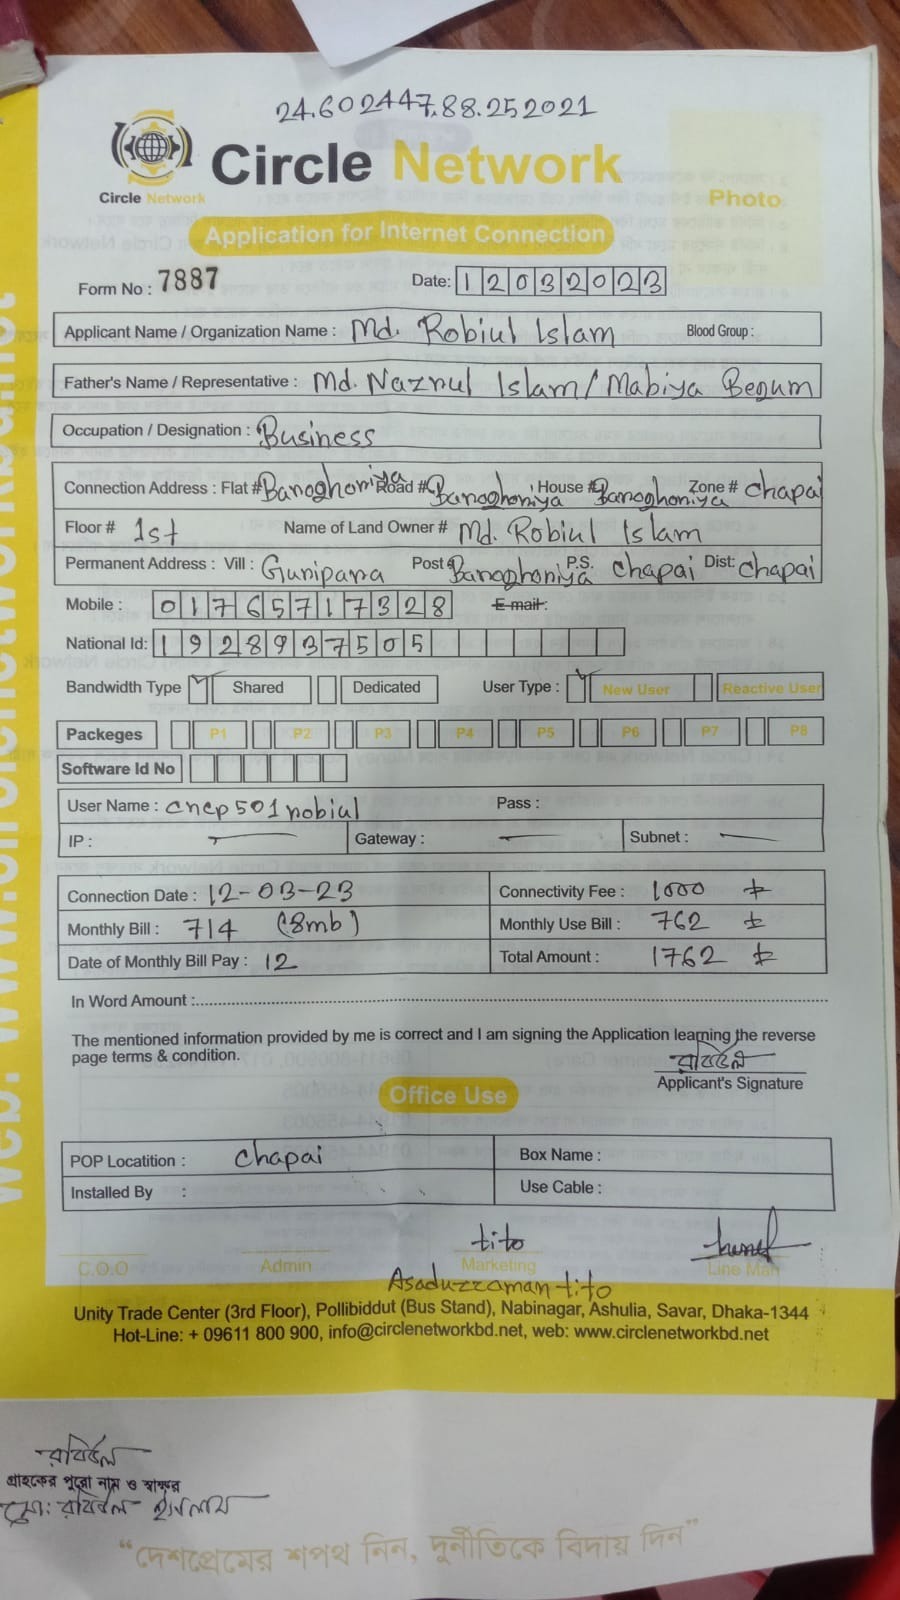 24.602447.88.252021
Circle Network
Circle Network
Photo
Application for Internet Connection
Form No : 7887
Date: 12032023
Applicant Name / Organization Name : Md. Robiul Islam Blood Group :
Father's Name / Representative : Md. Nazrul Islam / Mabiya Begum
Occupation / Designation : Business
Connection Address : Flat # Baroghoriya Road # Baroghoriya House # Baroghoriya Zone # Chapai
Floor # 1st Name of Land Owner # Md. Robiul Islam
Permanent Address : Vill : Guripara Post Baroghoriya P.S. Chapai Dist: Chapai
Mobile : 01765717328 E-mail:
National Id: 1928937505
Bandwidth Type Shared Dedicated User Type : New User Reactive User
Packeges P1 P2 P3 P4 P5 P6 P7 P8
Software Id No
User Name : crcp501robiul Pass :
IP : Gateway : Subnet :
Connection Date : 12-03-23 Connectivity Fee : 1000
Monthly Bill : 714 (8mb) Monthly Use Bill : 762
Date of Monthly Bill Pay : 12 Total Amount : 1762
In Word Amount :
The mentioned information provided by me is correct and I am signing the Application learning the reverse
page terms & condition.
রবিউল
Applicant's Signature
Office Use
POP Locatition : Chapai Box Name :
Installed By : Use Cable :
tito
C.O.O Admin Marketing Line Man
Asaduzzaman tito
Unity Trade Center (3rd Floor), Pollibiddut (Bus Stand), Nabinagar, Ashulia, Savar, Dhaka-1344
Hot-Line: + 09611 800 900, info@circlenetworkbd.net, web: www.circlenetworkbd.net
web: www.circlenetworkbd.net
রবিউল
গ্রাহকের পুরো নাম ও স্বাক্ষর
মো: রবিউল ইসলাম
“দেশপ্রেমের শপথ নিন, দুর্নীতিকে বিদায় দিন”